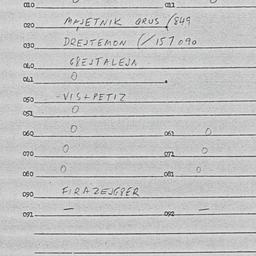 010 0 011 0
020 MAJETNIK ORUS /849
030 DREJTEMON (/157090
040 GREJTALEJA
041 0
050 -VIS+PETIZ
051 0
060 0 061 0
070 0 071 0
080 0 081 0
090 FIRAZEJGGER
091 — 092 —